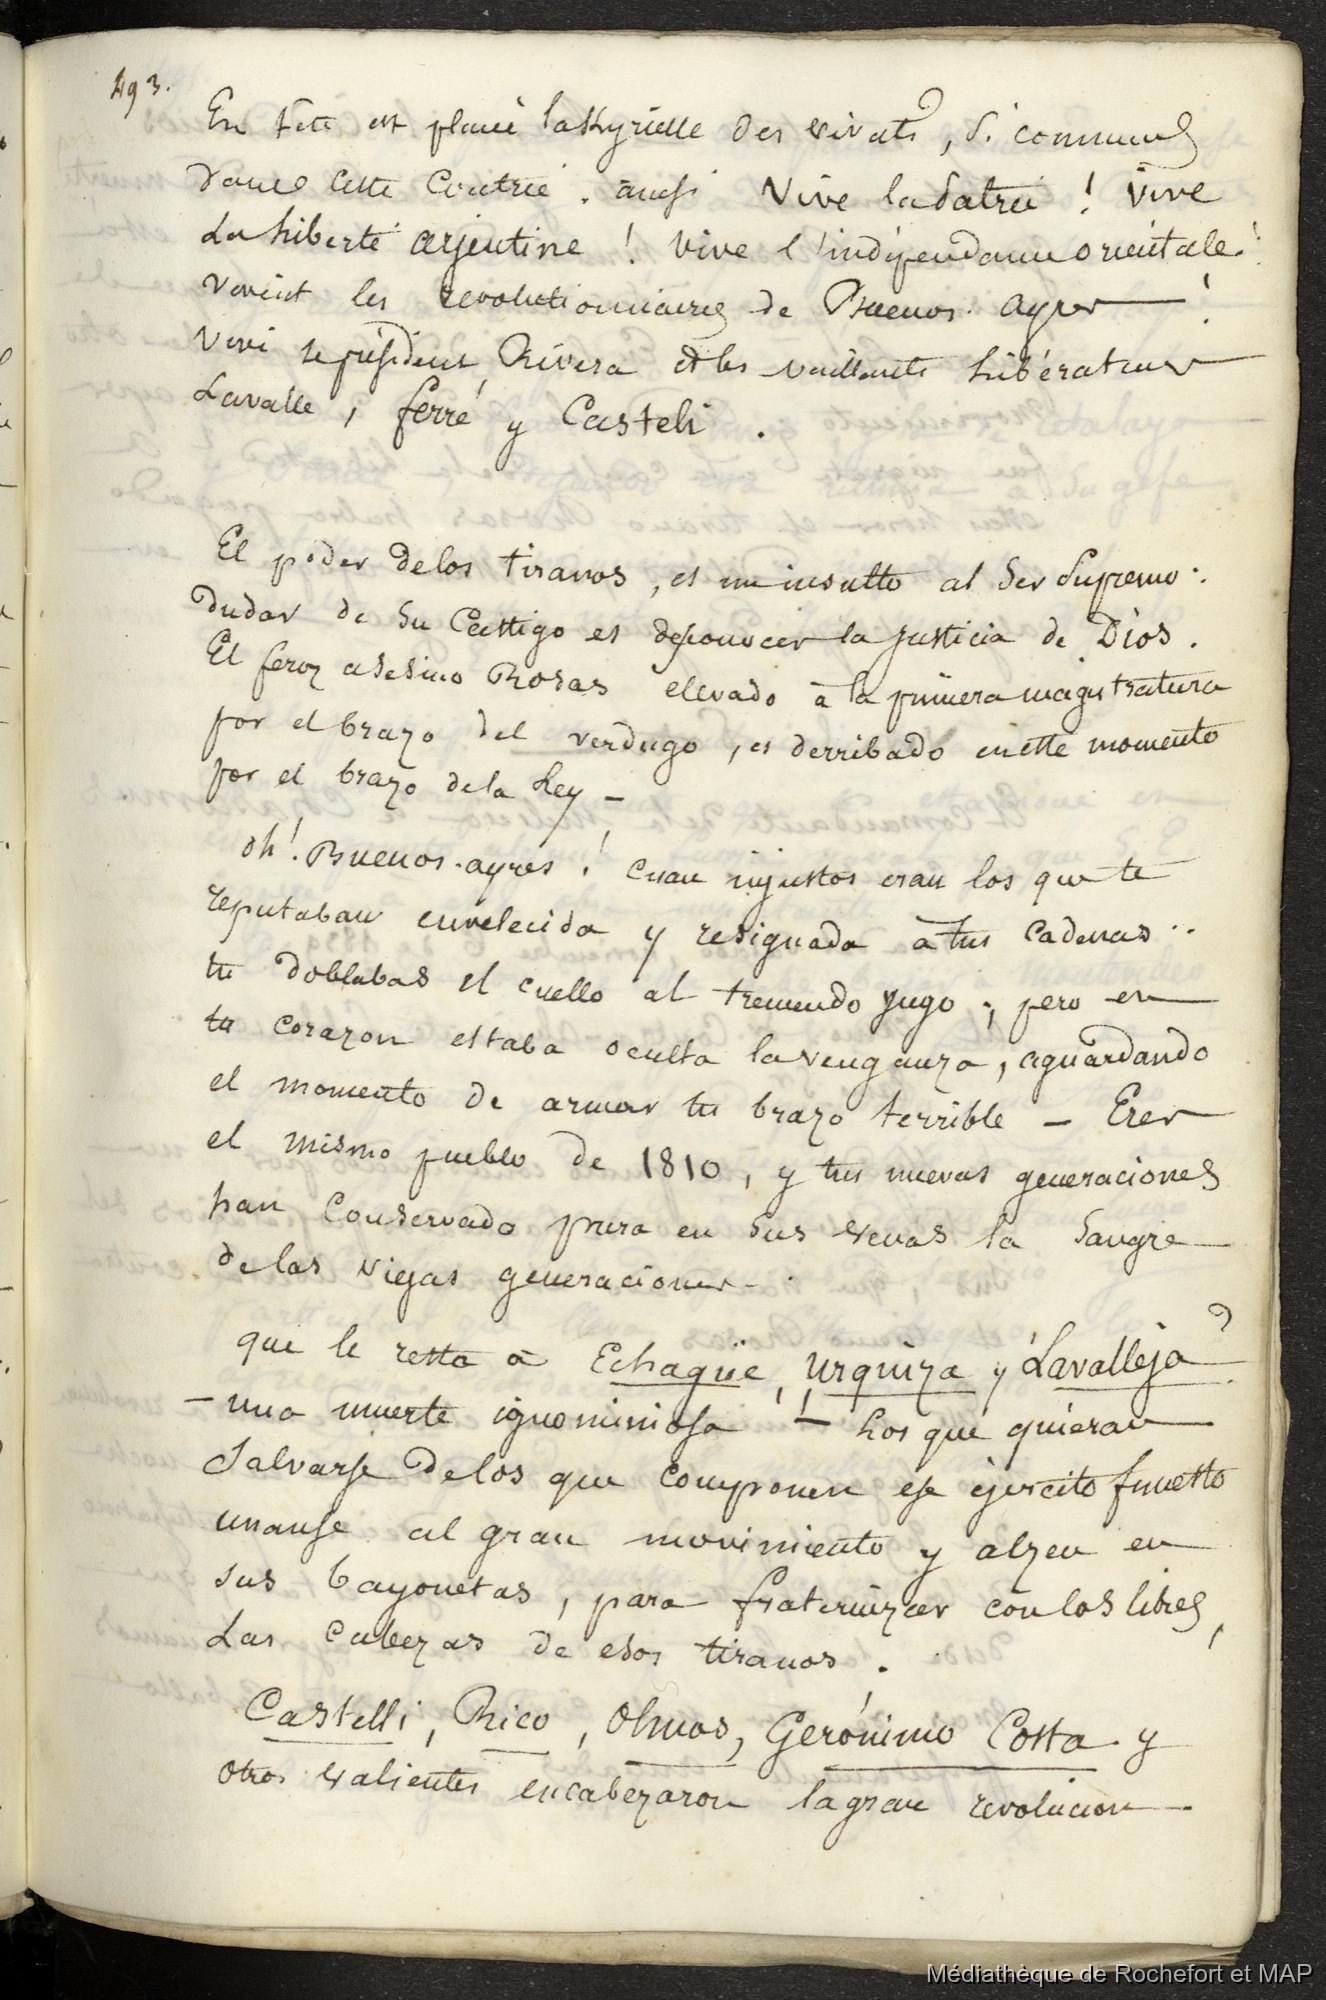 493.
En tête est placée la Kyrielle des vivats, si communs
dans cette Contrée. ainsi Vive la Patrie ! Vive
La Liberté argentine ! Vive l'indépendance orientale !
vivent les revolutionnaires de Buenos-ayres !
Vive le président Rivera et les vaillants Libérateurs
Lavalle, ferré y Casteli.
El poder de los tiranos, es un insulto al Ser Supremo :
Dudar de Su Castigo es desconocer la justicia de Dios.
El feroz asesino Rosas elevado à la primera magistratura
por el brazo del verdugo, es derribado en este momento
por el brazo de la Ley —
oh ! Buenos-ayres ! cuan injustos eran los que te
reputaban envelecida y resignada à tus cadenas..
tu doblabas el cuello al tremendo yugo ; pero en
tu corazon estaba oculta la venganza, aguardando
el momento de armar tu brazo terrible — Eres
el mismo pueblo de 1810, y tus nuevas generaciones
han Conservado pura en sus venas la Sangre
de las viejas generaciones.
que le resta à Echagüe, Urquiza y Lavalleja ?
— una muerte ignominiosa ! — Los que quieran
Salvarse de los que componen ese ejercito funesto
unanse al gran movimiento y alzen en
sus bayonetas, para fraternizar con los libres,
Las Cabezas de esos tiranos.
Castelli, Rico, Olmos, Gerónimo Costa y
otros valientes encabezaron la gran revolucion —
Médiathèque de Rochefort et MAP